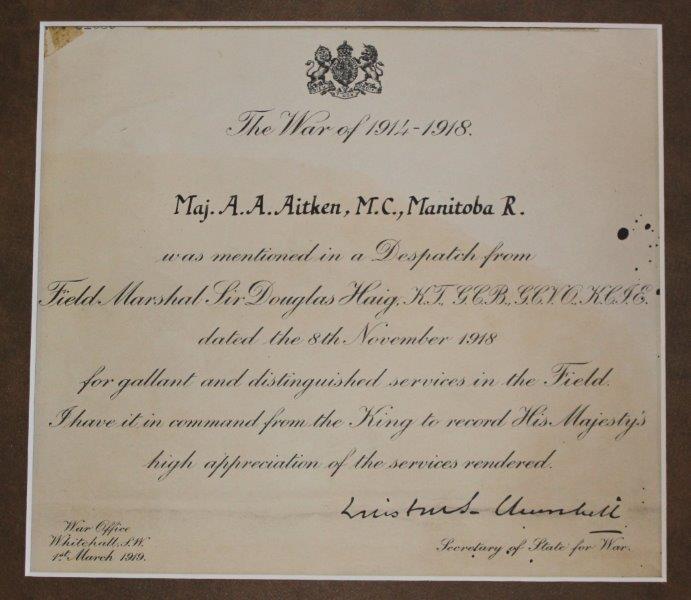 The War of 1914-1918.
Maj. A. A. Aitken, M.C., Manitoba R.
was mentioned in a Despatch from
Field Marshal Sir Douglas Haig, K.T., G.C.B., G.C.V.O., K.C.I.E.
dated the 8th November 1918
for gallant and distinguished services in the Field.
I have it in command from the King to record His Majesty's
high appreciation of the services rendered.
Winston S. Churchill
War Office
Whitehall, S.W.
1st March 1919.
Secretary of State for War.